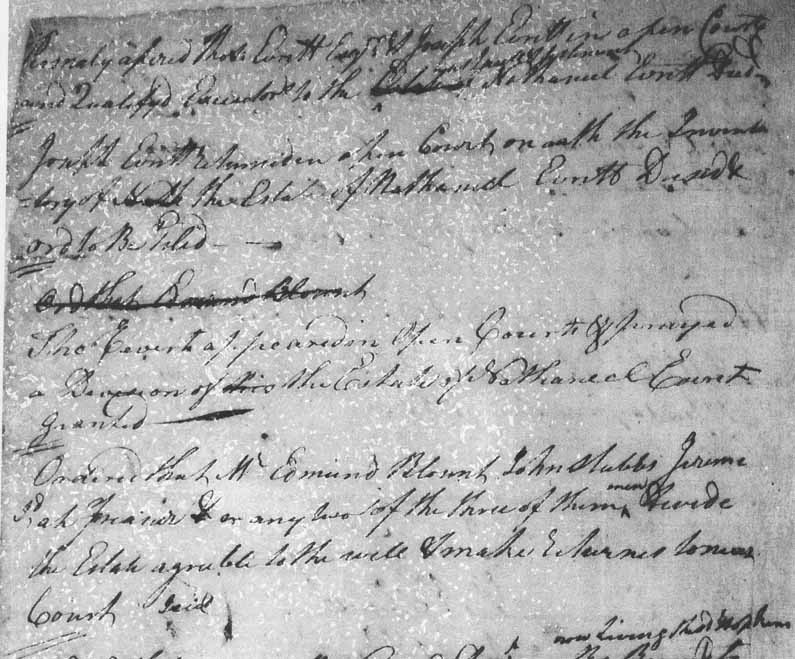 Persnaly apired Thos Evritt Esqr & Joseph Evritt in open Court
last will & Testament
and Qualifyd Executors to the Estate Nathaniel Evritt Decd
Joseph Evritt returned in open Court on oath the Inven
-tory of the Estate of Nathaniel Evritt Decasd &
ord to Be filed
Ord that Edmund Blount
Thos Everit appeared in Open Court & prayed
a Division of this the Estate of Nathaneel Everit
granted
Ordered that Mr Edmund Blount John Stubbs Jereme
ah Frasier & or any two of the three of them men Devide
the Estate agreable to the will & make Returnes to next
Court
now Living